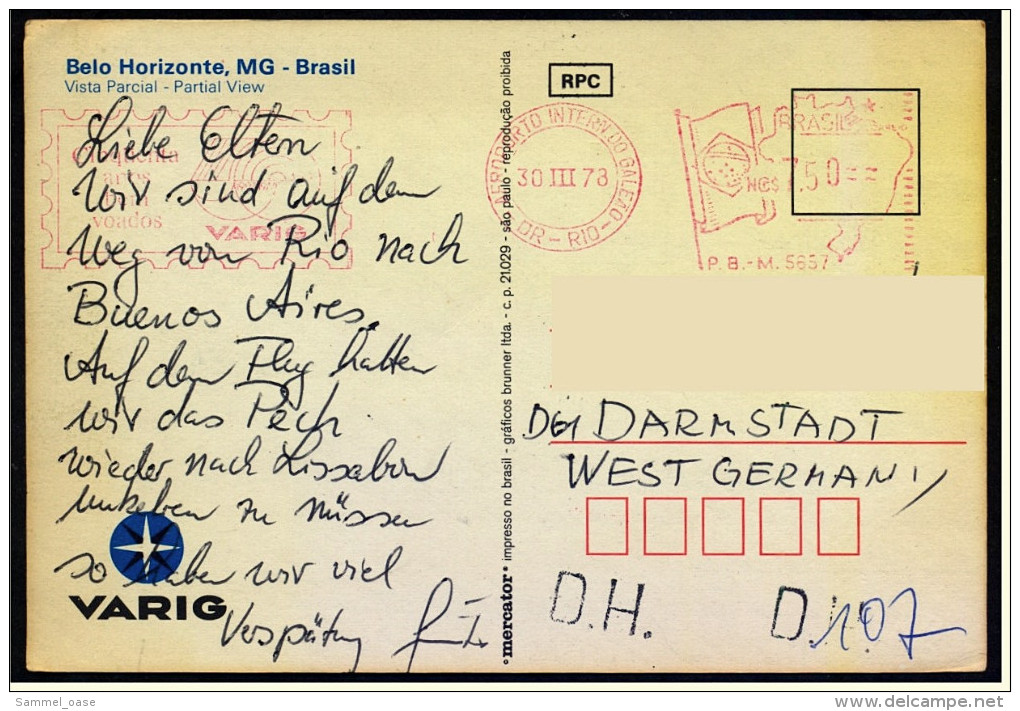 Belo Horizonte, MG - Brasil
Vista Parcial - Partial View
Cinquenta
anos
bem
voados
VARIG
Liebe Eltern
wir sind auf dem
Weg von Rio nach
Buenos Aires.
Auf dem Flug hatten
wir das Pech
wieder nach Lissabon
umkehren zu müssen
so haben wir viel
Verspätung
VARIG
mercator impresso no brasil - gráficos brunner ltda. - c. p. 21.029 - são paulo - reprodução proibida
RPC
AEROPORTO INTERN. DO GALEÃO
30 III 78
DR - RIO
BRASIL
50==
P. B.-M. 5657
DARMSTADT
WEST GERMANY
D.H.
D.
107
Sammel_oase
www.delcampe.net